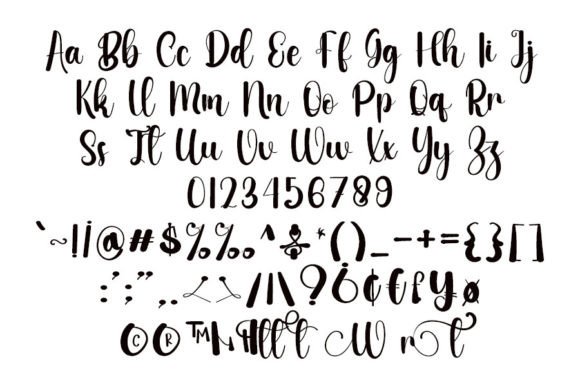 Aa Bb Cc Dd Ee Ff Gg Hh Ii Jj
Kk Ll Mm Nn Oo Pp Qq Rr
Ss Tt Uu Vv Ww Xx Yy Zz
0123456789
`~!¡@#$%‰^÷*()_-+={}[]
:;",.<>/|\?¿¢€£¥ø
©®™ W r t